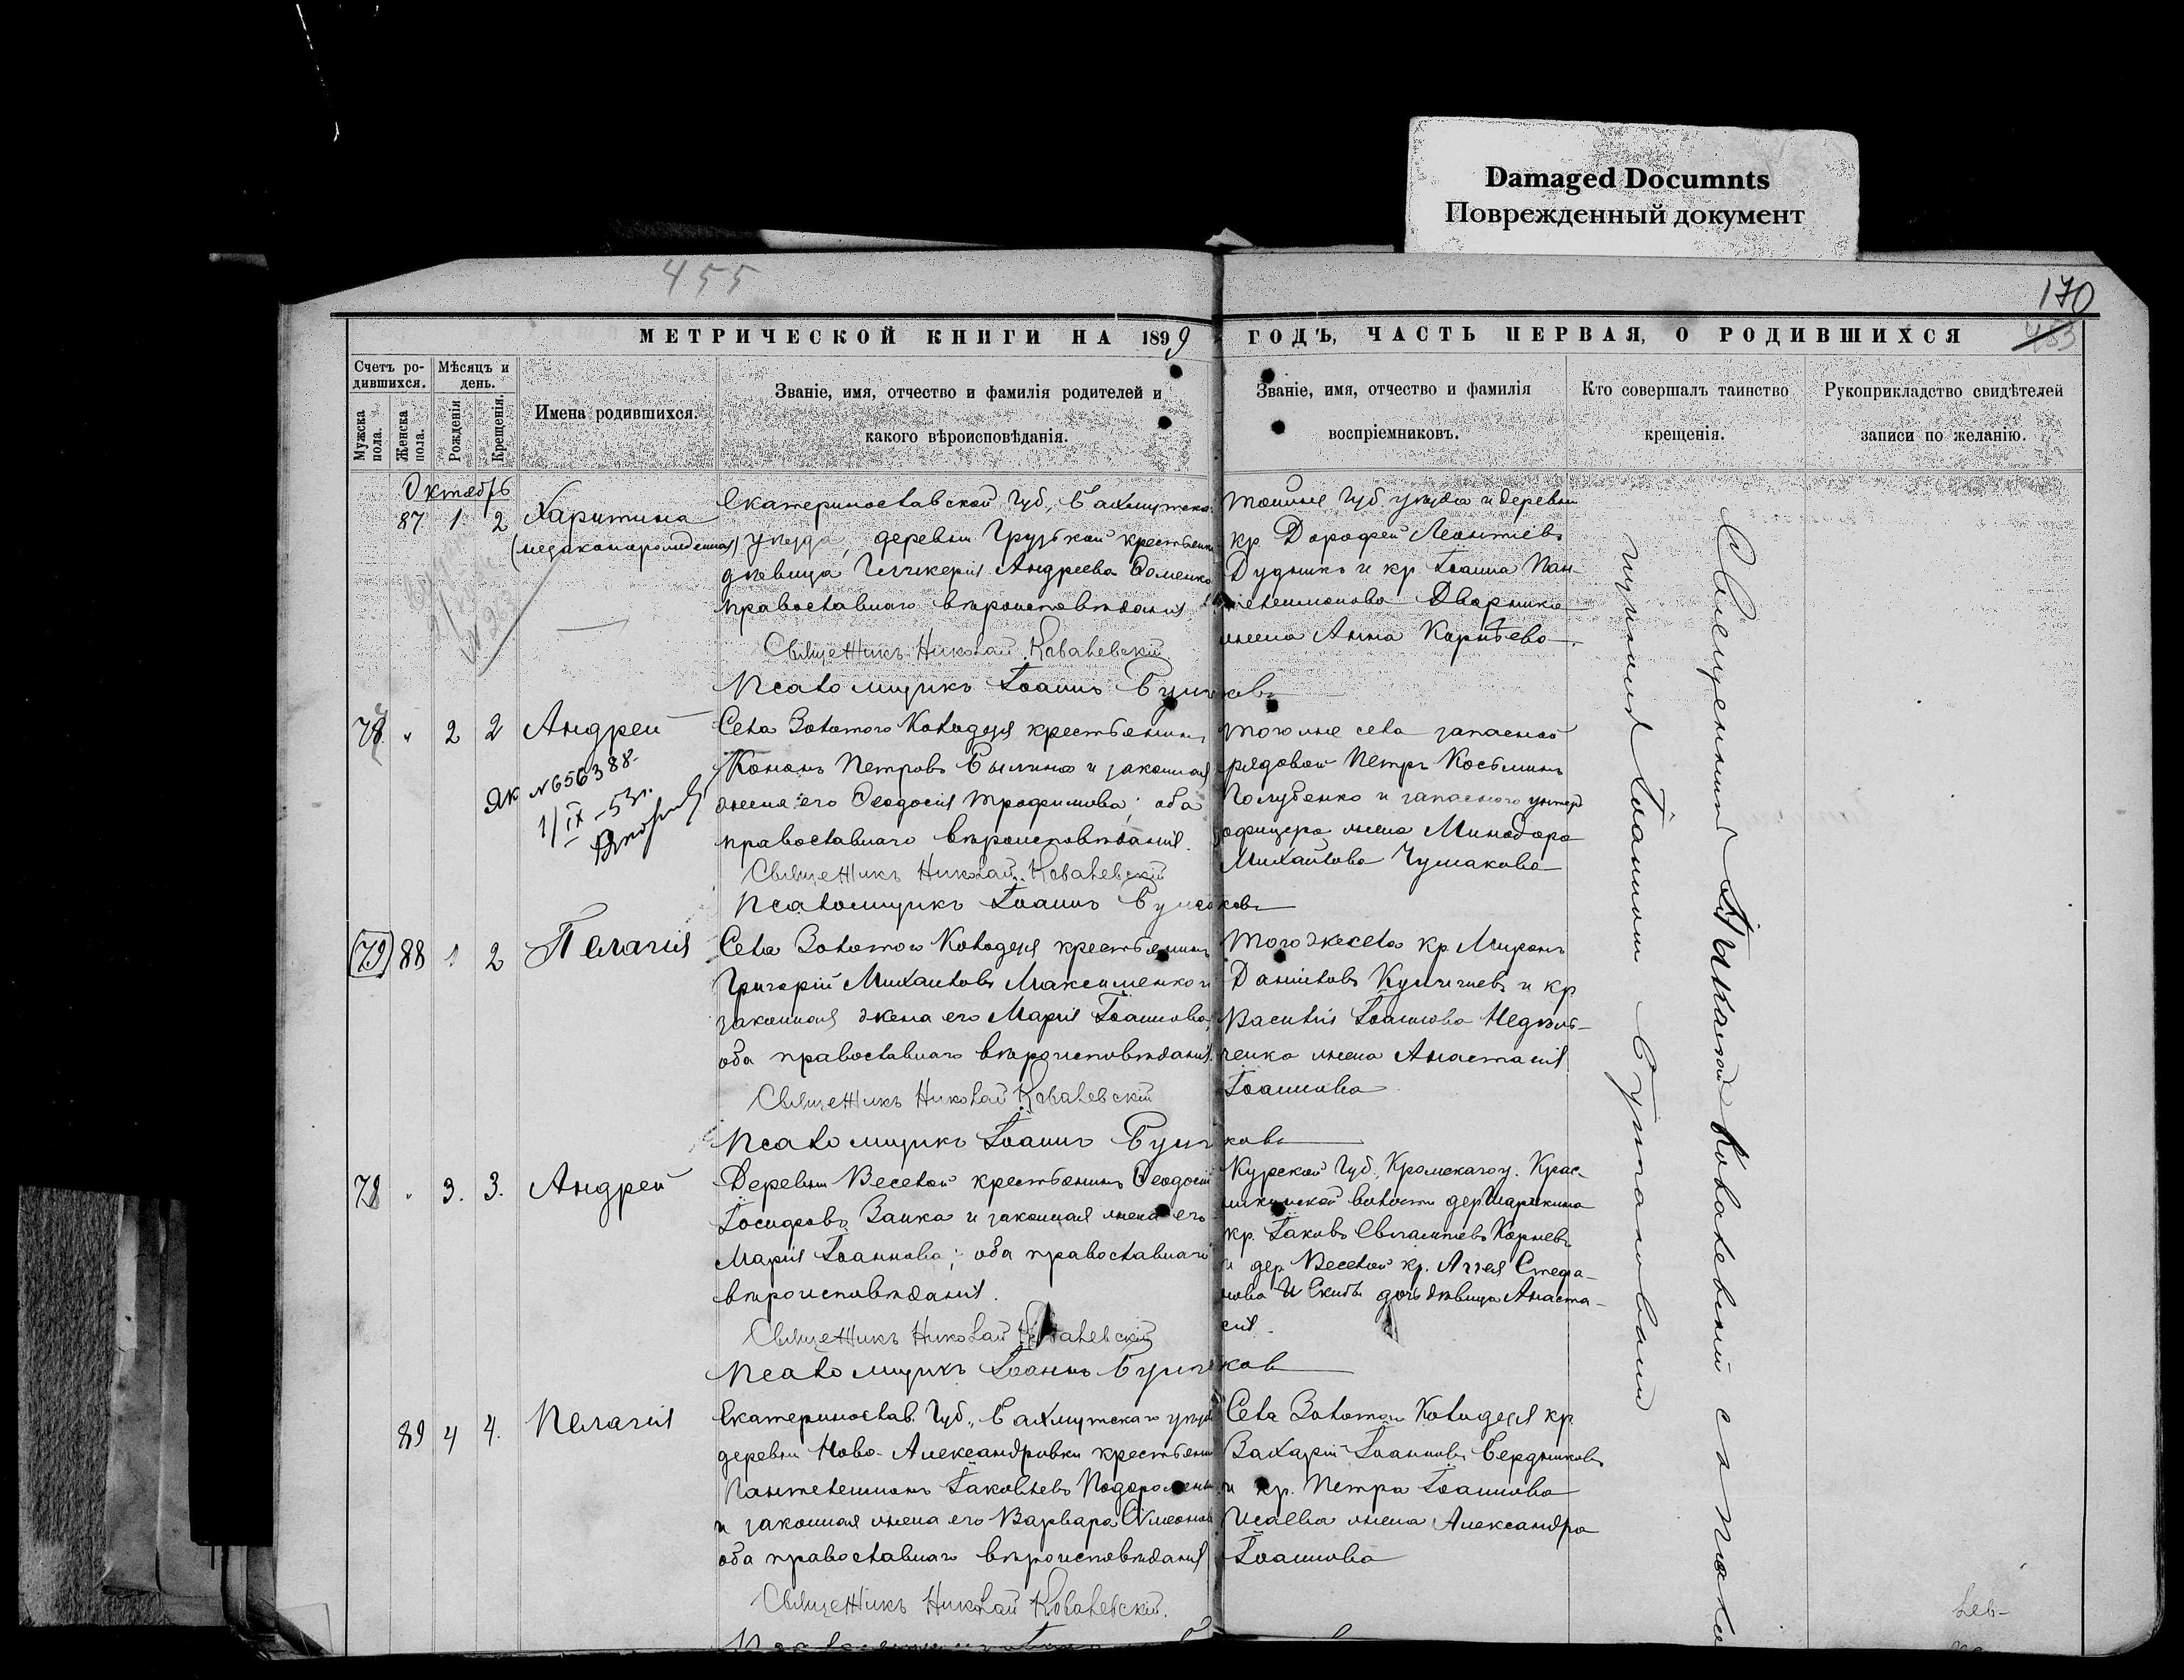 Damaged Documnts
Поврежденный документ
455
170
453
МЕТРИЧЕСКОЙ КНИГИ НА 1899 ГОДЪ, ЧАСТЬ ПЕРВАЯ, О РОДИВШИХСЯ
Счетъ ро-
дившихся.
Мужска пола.
Женска пола.
Мѣсяцъ и
день.
Рожденія
Крещенія.
Имена родившихся.
Званіе, имя, отчество и фамилія родителей и
какого вѣроисповѣданія.
Званіе, имя, отчество и фамилія
воспріемниковъ.
Кто совершалъ таинство
крещенія.
Рукоприкладство свидѣтелей
записи по желанію.
Октябрь
87 1. 2 Харитина
(незаконорожденная)
Екатеринославской Губ., Бахмутска.
уѣзда, деревни Грузской крестьян
дѣвица Гликерія Андреева Фоменко
православнаго вѣроисповѣданія
Священникъ Николай Ковалевскій
Псаломщикъ Іоаннъ
тойже Губ. уѣзда и деревни
кр. Дорофей Леонтіевъ
Дудникъ и кр. Іоанна Пан-
телеимонова Дворника
жена Анна
78 " 2 2 Андрей
ЯК №656388
1/IX-53г.
Села Золотого Колодезя крестьянинъ
Кононъ Петровъ и законная
жена его Феодосія Трофимова; оба
православнаго вѣроисповѣданія.
Священникъ Николай Ковалевскій
Псаломщикъ Іоаннъ
того же села запасной
рядовой Петръ Косьминъ
Голубенко и запасного унтеръ
офицера жена Минодора
Михайлова Чумакова
79 88 1 2 Пелагія
Села Золотого Колодезя крестьянинъ
Григорій Михайловъ Максименко и
законная жена его Марія Іоаннова,
оба православнаго вѣроисповѣданія.
Священникъ Николай Ковалевскій
Псаломщикъ Іоаннъ
того же села кр. Миронъ
Даніиловъ и кр.
Василія Іоаннова
ченка жена Анастасія
Іоаннова
78 " 3. 3. Андрей
Деревни Веселой крестьянинъ Феодосій
Іосифовъ Заика и законная жена его
Марія Іоаннова; оба православнаго
вѣроисповѣданія.
Священникъ Николай Ковалевскій
Псаломщикъ Іоаннъ
Курской Губ., Кромскаго у. Крас-
волости дер.
кр. Іаковъ Корневъ
и дер. Веселой кр. Стефа-
нова дочь дѣвица Анаста-
сія.
89 4 4. Пелагія
Екатеринослав. Губ., Бахмутскаго уѣзда
деревни Ново-Александровки крестьянин
Пантелеимонъ Іаковлевъ
и законная жена его Варвара Симеонов
оба православнаго вѣроисповѣданія
Священникъ Николай Ковалевскій.
Села Золотого Колодезя кр.
Захарій Іоанновъ Бердниковъ
и кр. Петра Іоаннова
Исаева жена Александра
Іоаннова
Священникъ Николай Ковалевскій съ псалом-
щикомъ Іоанномъ